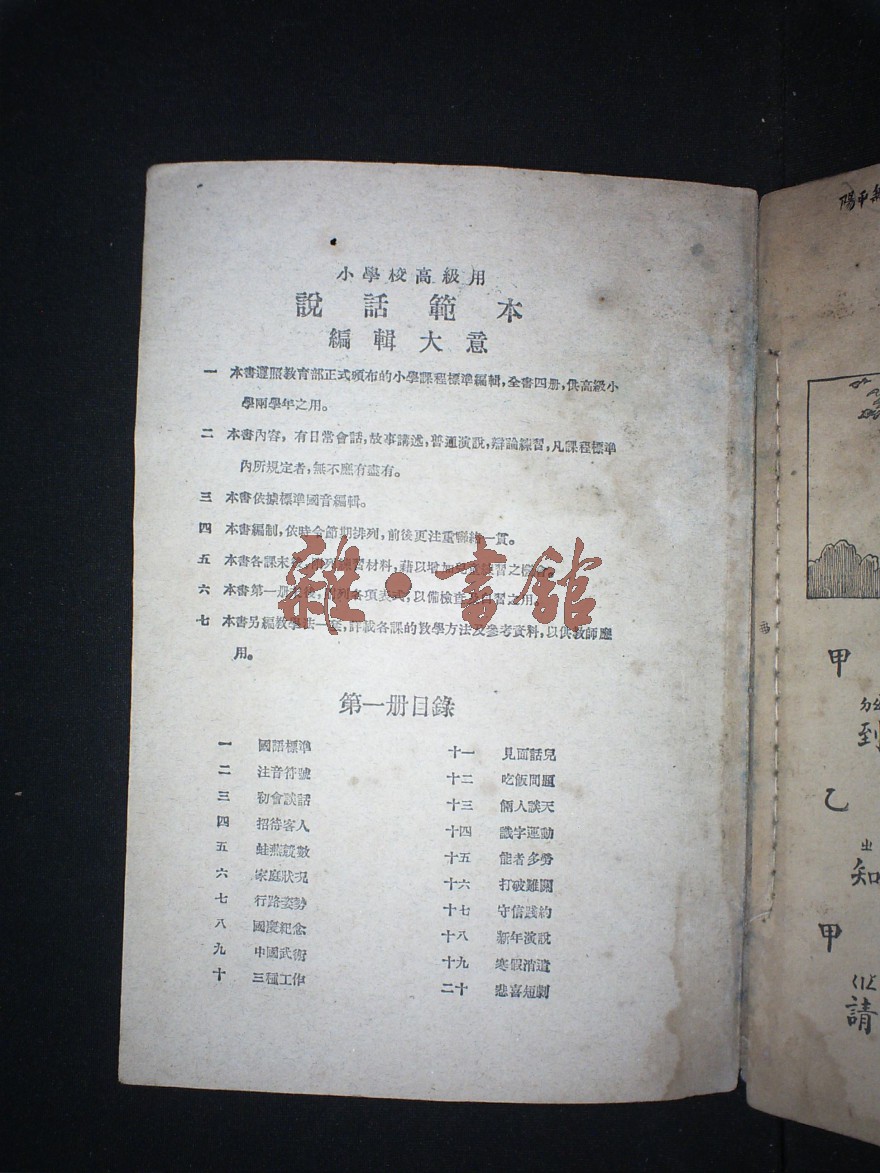 小學校高級用
說話範本
編輯大意
一 本書遵照教育部正式頒布的小學課程標準編輯，全書四册，供高級小
學兩學年之用。
二 本書內容，有日常會話，故事講述，普通演說，辯論練習，凡課程標準
內所規定者，無不應有盡有。
三 本書依據標準國音編輯。
四 本書編制，依時令節期排列，前後更注重聯絡一貫。
五 本書各課末 習材料，藉以增加 習之機
六 本書第一册 列各項表式，以備檢查 習之用。
七 本書另編教學 一 ，詳載各課的教學方法及參考資料，以供教師應
用。
雜·書館
第一册目錄
一 國語標準
二 注音符號
三 初會談話
四 招待客人
五 蛙燕競數
六 家庭狀況
七 行路姿勢
八 國慶紀念
九 中國武術
十 三種工作
十一 見面話兒
十二 吃飯問題
十三 倆人談天
十四 識字運動
十五 能者多勞
十六 打破難關
十七 守信踐約
十八 新年演說
十九 寒假消遣
二十 悲喜短劇
陽平
甲
到
乙
ㄓ
知
甲
請